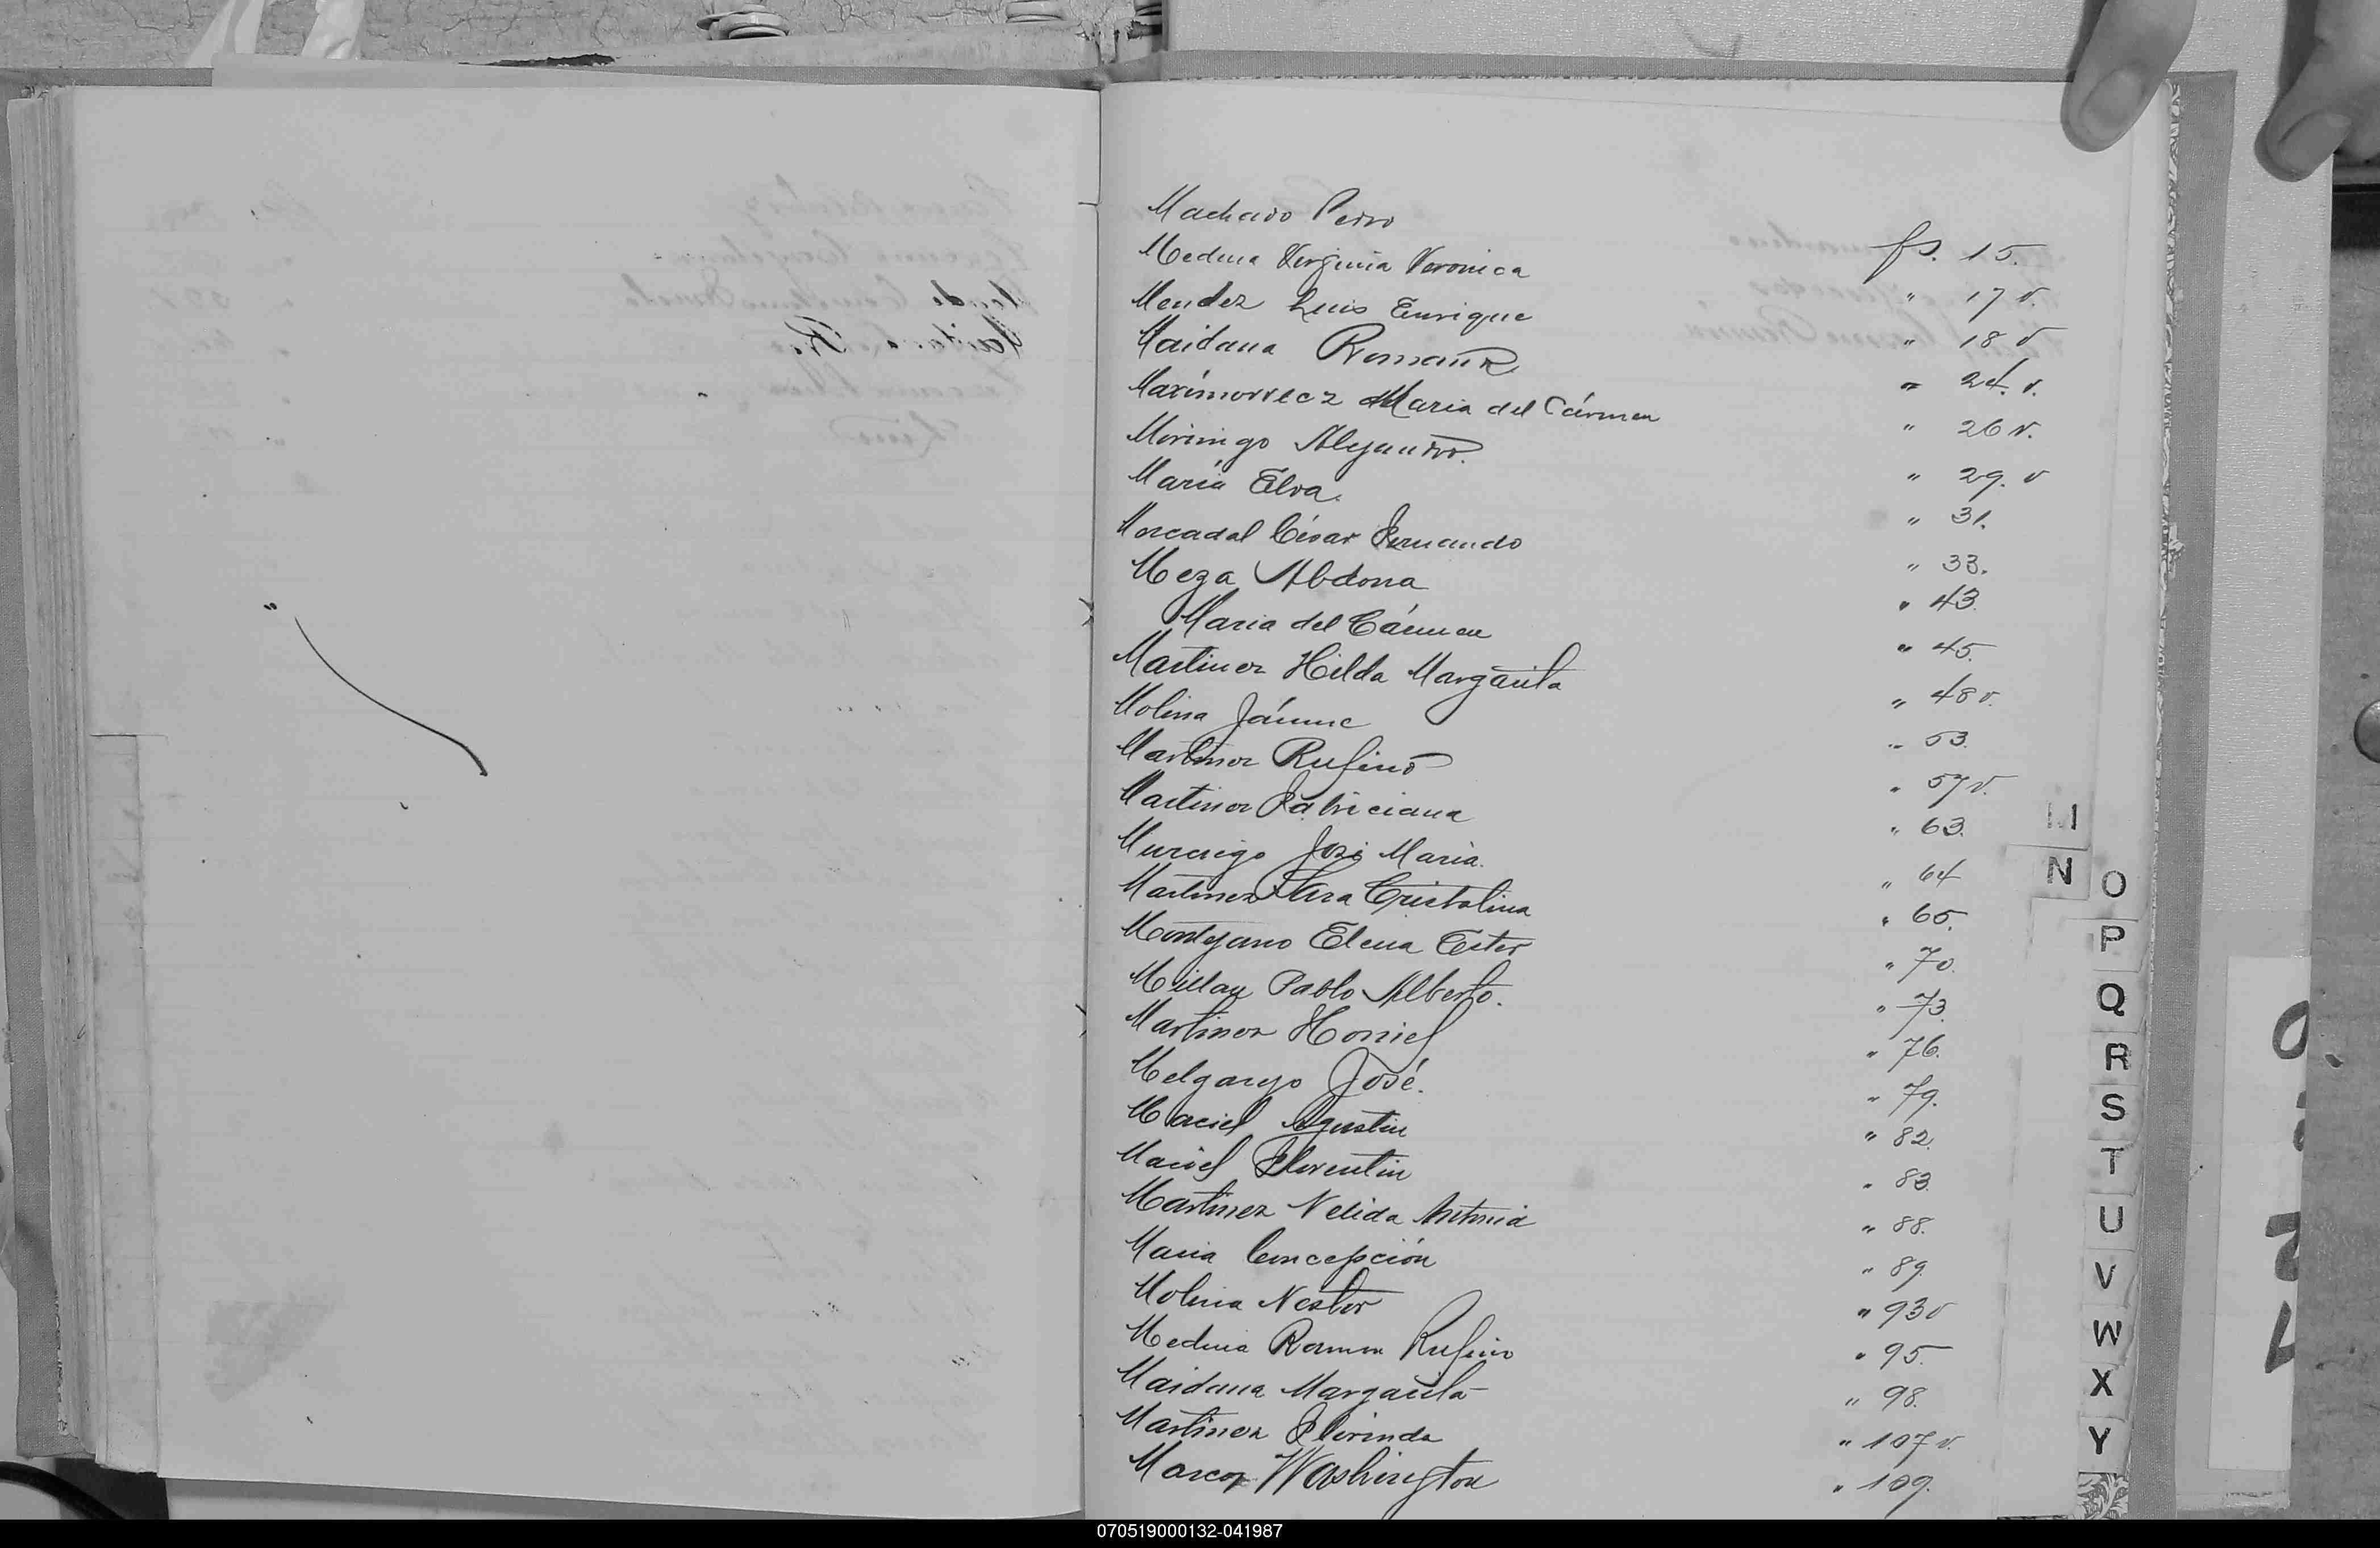 Machado Pedro fs. 15.
Medina Virginia Veronica " 17 v.
Mendez Luis Enrique " 18 v
Maidana Roman " 24. v.
Maximovrecz Maria del Cármen " 26 v.
Moringo Alejandro. " 29. v
María Elva. " 31.
Mercadal César Fernando " 33.
Meza Abdona " 43.
Maria del Cármen " 45.
Martinez Hilda Margarita " 48 v.
Molina Jáime " 53.
Martinez Rufino " 57 v.
Martinez Patriciana " 63.
José Maria. " 64
Martinez Clara Cristalina " 65.
Montejano Elena Ester " 70.
Millan Pablo Alberto. " 73.
Martinez " 76.
Melgarejo José. " 79.
Maciel Agustin " 82.
Maciel Florentin " 83.
Martinez Nelida Antonia " 88.
Maria Concepción " 89.
Molina Nestor " 93 v
Medina Ramon Rufino " 95.
Maidana Margarita " 98.
Martinez Florinda " 107 v.
Marcos Washington " 109.
M
N
O
P
Q
R
S
T
U
V
W
X
Y
070519000132-041987